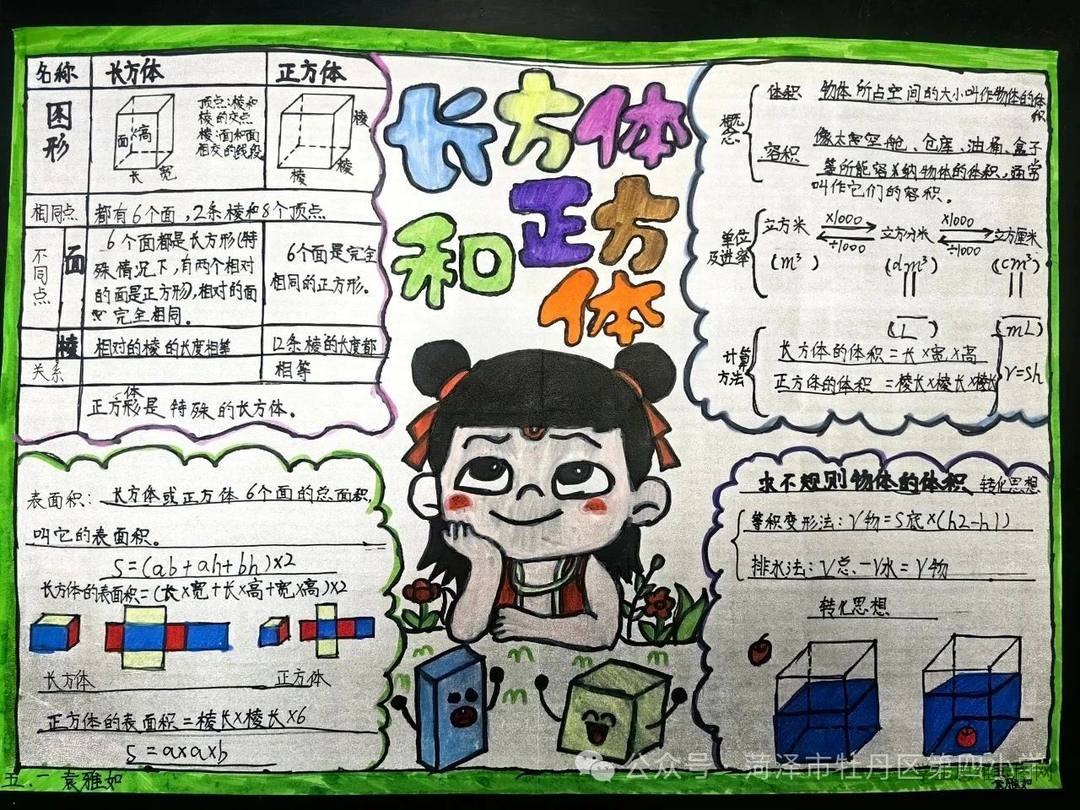 长方体
和正方
体
名称 长方体 正方体
图形
顶点:棱和
棱的交点
棱:面和面
相交的线段
面 高
长 宽
棱
棱 棱
相同点 都有6个面,12条棱和8个顶点
不同点 面
6个面都是长方形(特
殊情况下,有两个相对
的面是正方形),相对的面
完全相同。
6个面是完全
相同的正方形。
棱 相对的棱的长度相等
12条棱的长度都
相等
关系
正方体是特殊的长方体。
概念
体积 物体所占空间的大小叫作物体的体积
容积
像太空舱、仓库、油桶、盒子
等所能容纳物体的体积,通常
叫作它们的容积。
单位及进率
立方米 ×1000 ÷1000 立方分米 ×1000 ÷1000 立方厘米
(m³) (dm³) (cm³)
(L) (mL)
计算方法
长方体的体积=长×宽×高
正方体的体积=棱长×棱长×棱长
V=Sh
表面积:长方体或正方体6个面的总面积,
叫它的表面积。
S=(ab+ah+bh)×2
长方体的表面积=(长×宽+长×高+宽×高)×2
长方体 正方体
正方体的表面积=棱长×棱长×6
S=a×a×b
求不规则物体的体积 转化思想
等积变形法:V物=S底×(h2-h1)
排水法:V总-V水=V物
转化思想
五.一 袁雅如
公众号 菏泽市牡丹区第四小学
袁雅如